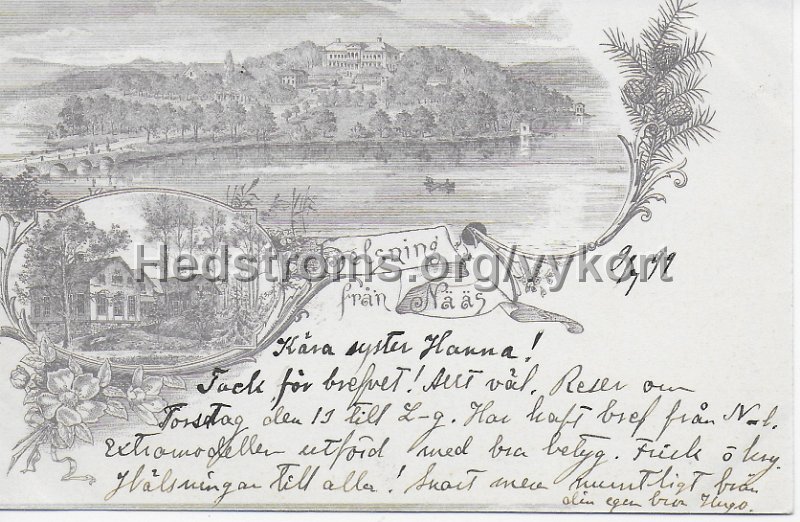 Helsning
från Nääs
Hedstroms.org/vykort
Kära syster Hanna!
Tack för brefvet! Allt väl. Reser om
Torsdag den 13 till L-g. Har haft bref från N-l.
Extramodellen utförd med bra betyg. Frisk ö
Hälsningar till alla! Snart mera muntligt från
din egen bror Hugo.